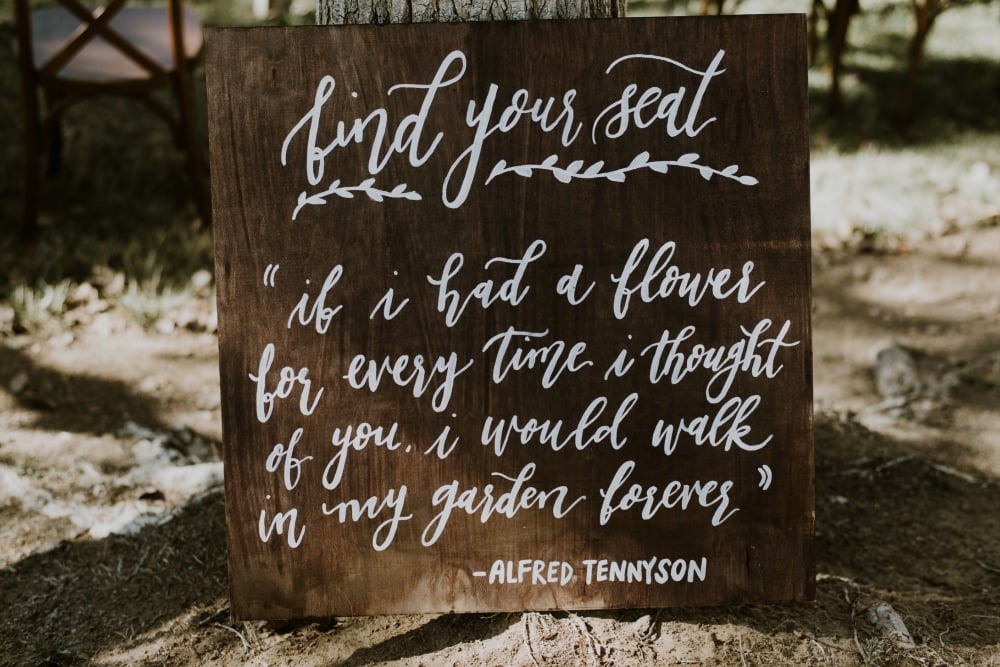 find your seat
"if i had a flower
for every time i thought
of you, i would walk
in my garden forever"
-ALFRED TENNYSON